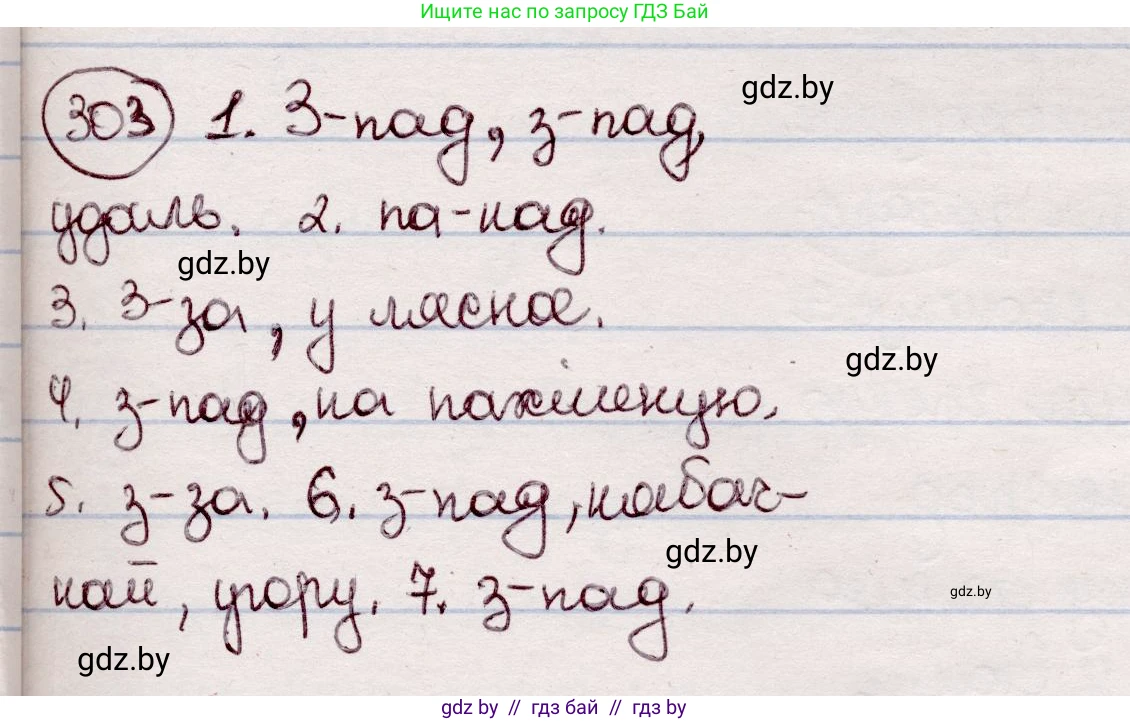 Ищите нас по запросу ГДЗ Бай
303 1. З-пад, з-пад, gdz.by
удаль. 2. па-над.
gdz.by
3. З-за, у лясное.
gdz.by
4. з-пад, на пахілую.
5. з-за. 6. з-пад, набач-
gdz.by
най, угору. 7. з-пад.
gdz.by
gdz.by
gdz by // гдз бай // гдз by